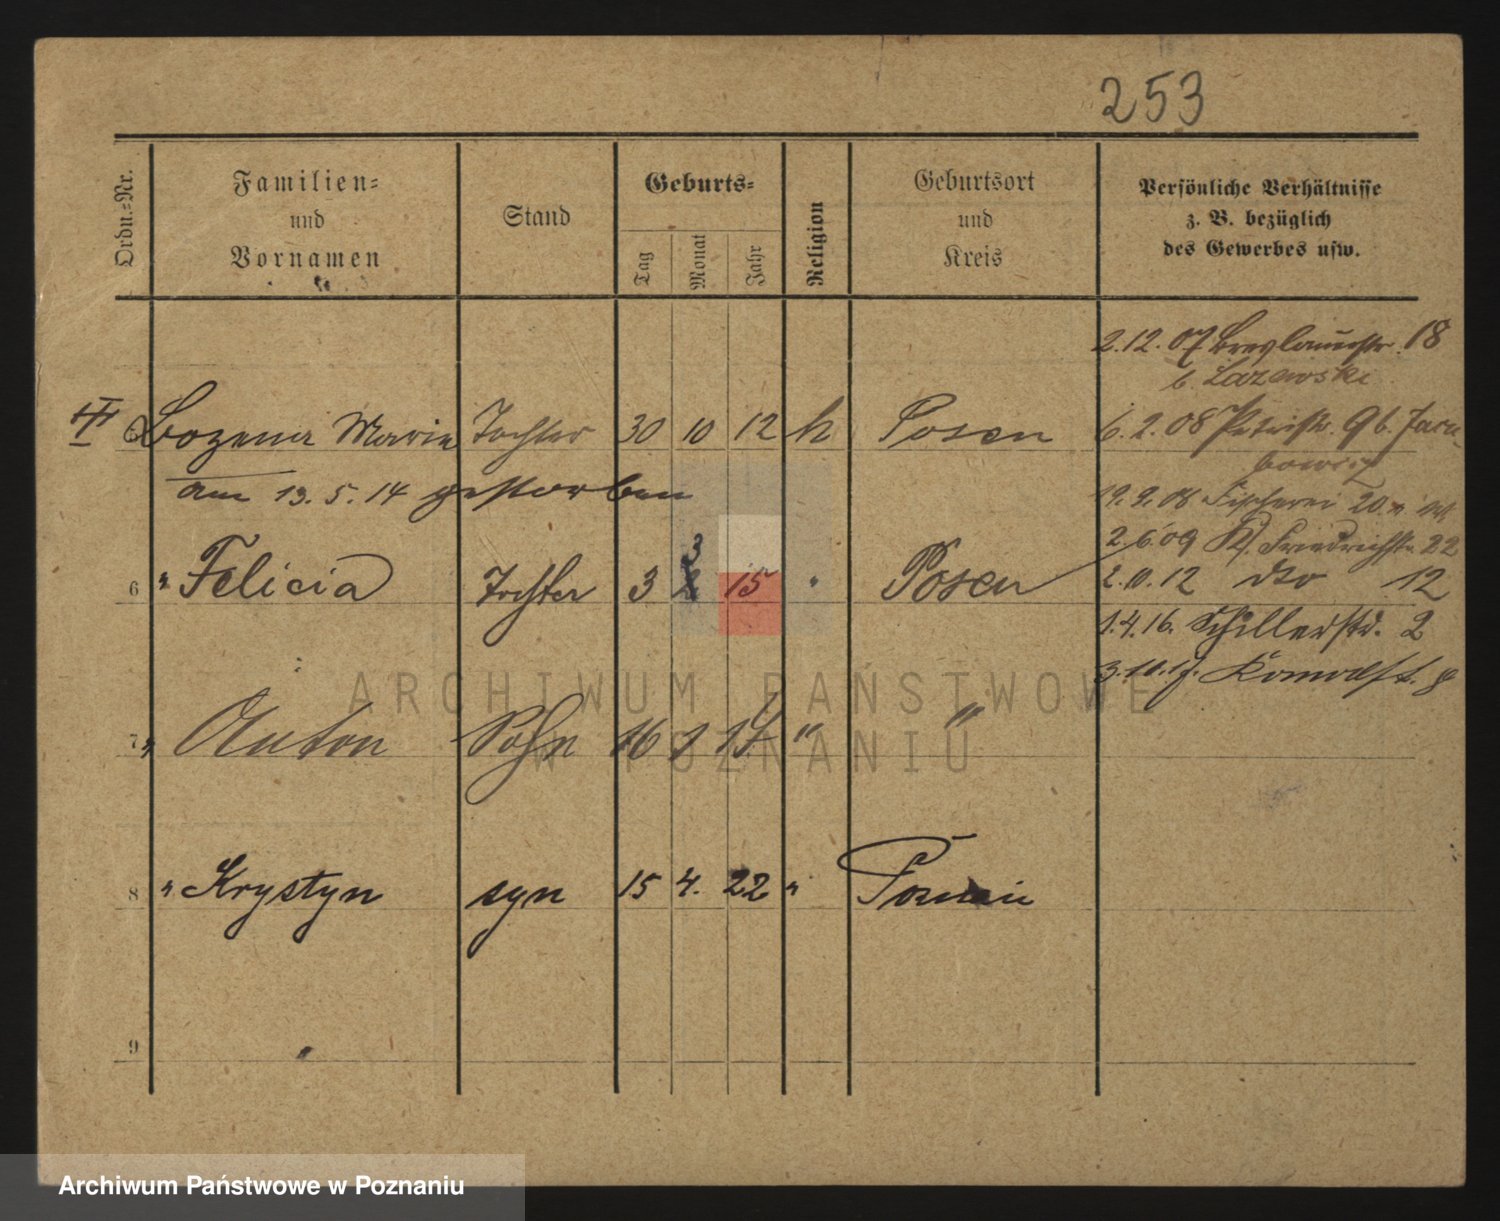 253
Ordn.-Nr.
Familien-
und
Vornamen
Stand
Geburts-
Tag
Monat
Jahr
Religion
Geburtsort
und
Kreis
Persönliche Verhältnisse
z. B. bezüglich
des Gewerbes usw.
2.12.07 Breslauerstr. 18
b. Lazewski
Bozena Marie Tochter 30 10 12 k Posen
6.2.08 9 b.
am 13. 5. 14 gestorben
19.9.08 Fischerei 20
2.6.09 Kl. Friedrichstr. 22
6 " Felicia Tochter 3 3 15 " Posen
2.10.12 dto 12
1.4.16. Schillerstr. 2
3.10.17.
7 " Anton Sohn 16 1 " "
8 " Krystyn syn 15 4. 22 "
9
ARCHIWUM PAŃSTWOWE
W POZNANIU
Archiwum Państwowe w Poznaniu